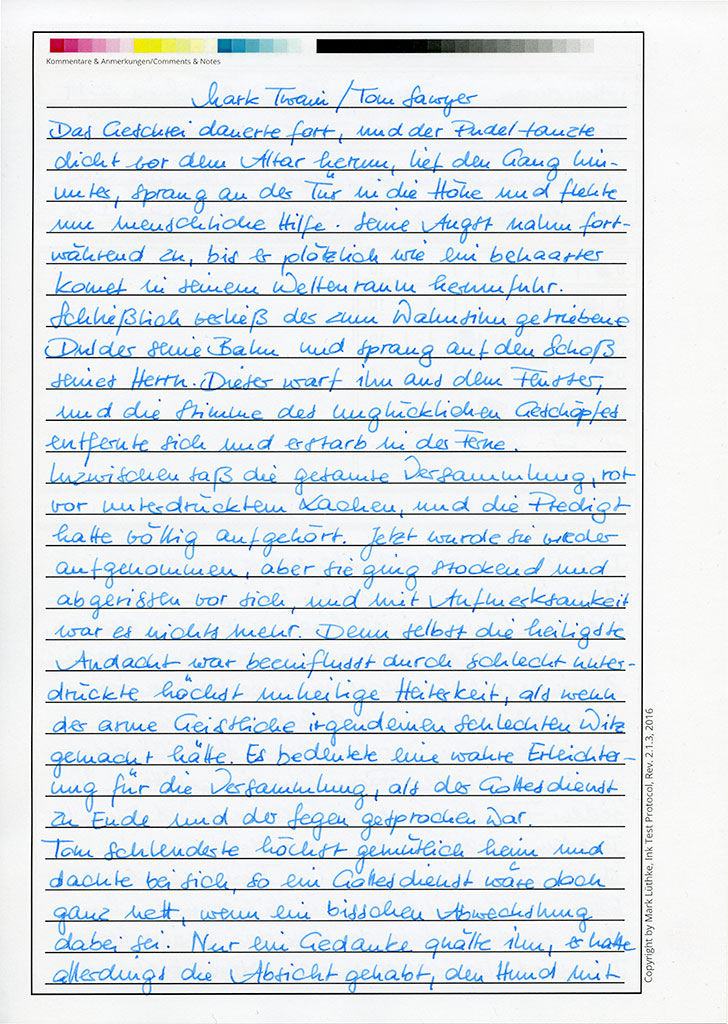 Kommentare & Anmerkungen/Comments & Notes
Mark Twain / Tom Sawyer
Das Geschrei dauerte fort, und der Pudel tanzte
dicht vor dem Altar herum, lief den Gang hin-
unter, sprang an der Tür in die Höhe und flehte
um menschliche Hilfe. Seine Angst nahm fort-
während zu, bis er plötzlich wie ein behaarter
Komet in seinem Weltenraum herumfuhr.
Schließlich verließ der zum Wahnsinn getriebene
Dulder seine Bahn und sprang auf den Schoß
seines Herrn. Dieser warf ihn aus dem Fenster,
und die Stimme des unglücklichen Geschöpfes
entfernte sich und erstarb in der Ferne.
Inzwischen saß die gesamte Versammlung, rot
vor unterdrücktem Lachen, und die Predigt
hatte völlig aufgehört. Jetzt wurde sie wieder
aufgenommen, aber sie ging stockend und
abgerissen vor sich, und mit Aufmerksamkeit
war es nichts mehr. Denn selbst die heiligste
Andacht war beeinflusst durch schlecht unter-
drückte höchst unheilige Heiterkeit, als wenn
der arme Geistliche irgendeinen schlechten Witz
gemacht hätte. Es bedeutete eine wahre Erleichter-
ung für die Versammlung, als der Gottesdienst
zu Ende und der Segen gesprochen war.
Tom schlenderte höchst gemütlich heim und
dachte bei sich, so ein Gottesdienst wäre doch
ganz nett, wenn ein bisschen Abwechslung
dabei sei. Nur ein Gedanke quälte ihn, er hatte
allerdings die Absicht gehabt, den Hund mit
Copyright by Mark Lüthke, Ink Test Protocol, Rev. 2.1.3, 2016